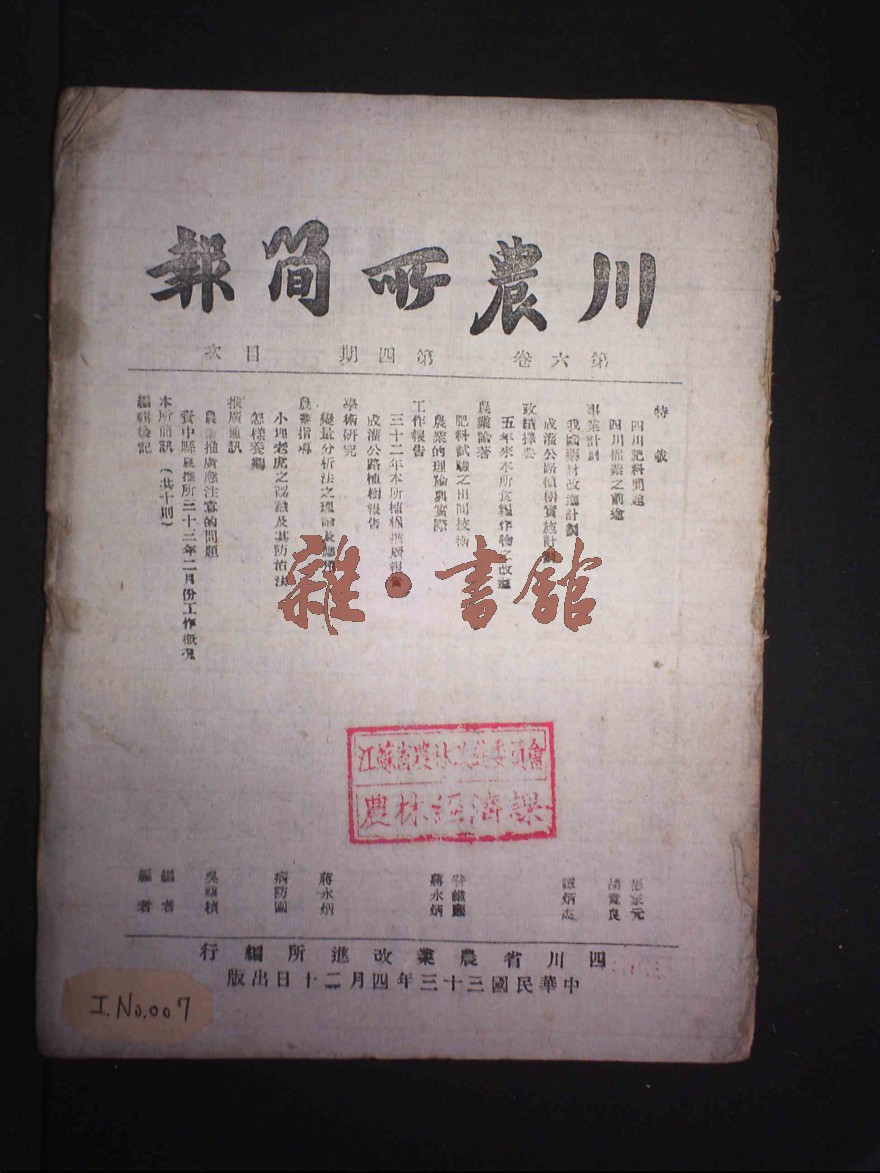 川農所簡報
第六卷 第四期 目次
特載
四川肥料問題
四川棉業之前途
事業計劃
我國藥材改進計劃
成渰公路植樹實施計劃
政績擇要
五年來本所食糧作物之改進
農業論著
肥料試驗之田間技術
農業的理論與實際
工作報告
三十二年本所植棉推廣報告
成渰公路植樹報告
學術研究
變量分析法之理論及應用
農業指導
小地老虎之認識及其防治法
怎樣養鷄
推廣通訊
農業推廣應注意的問題
資中縣農推所三十三年二月份工作概况
本所簡訊（共十則）
編輯後記
雜·書館
江蘇省農林 委員會
農林經濟課
炳
蔣永炳
蔣永炳
病防團
吳 積
編者
編者
四川省農業改進所編行
中華民國三十三年四月二十日出版
I.No.007